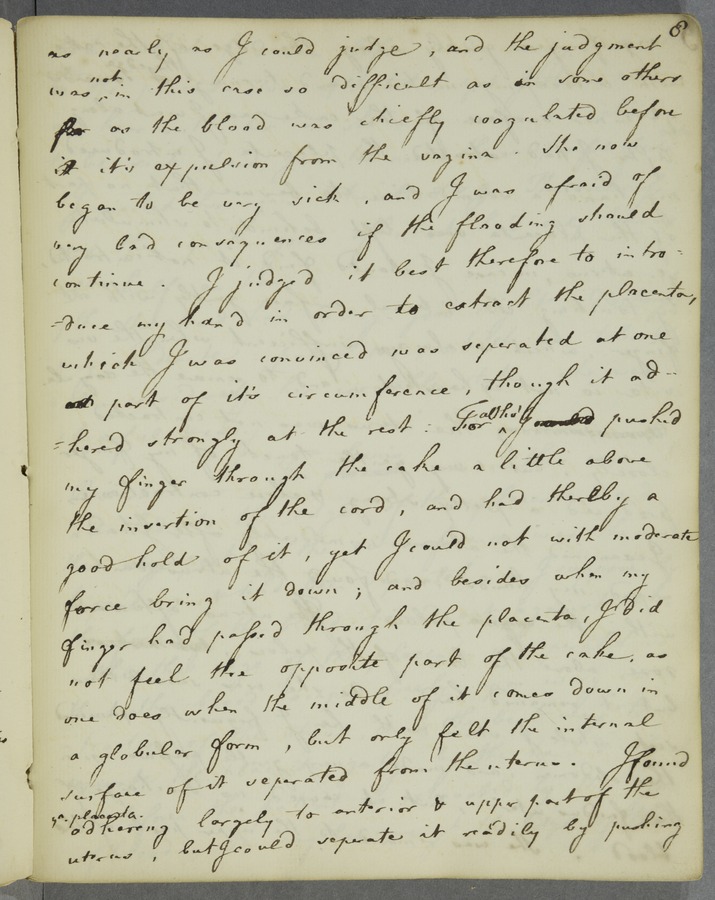 8
as nearly as I could judge, and the judgment
was not in this case so difficult as in some others
as the blood was chiefly coagulated before
it's expulsion from the vagina. She now
began to be very sick, and I was afraid of
very bad consequences if the flooding should
continue. I judged it best therefore to intro=
=duce my hand in order to extract the placenta,
which I was convinced was seperated at one
part of it's circumference, though it ad=
=hered strongly at the rest: For altho' I pushed
my finger through the cake a little above
the insertion of the cord, and had thereby a
good hold of it, yet I could not with moderate
force bring it down; and besides when my
finger had passed through the placenta, I did
not feel the opposite part of the cake, as
one does when the middle of it comes down in
a globular form, but only felt the internal
surface of it separated from the uterus. I found
ye. placenta.
adhereng largely to anterior & uppr part of the
uterus, but I could seperate it readily by pushing